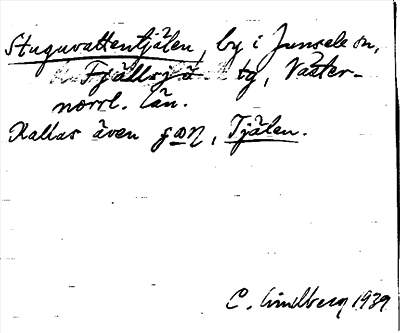 Stuguvattentjälen, by i Junsele sn,
Fjällsjö tg, Väster-
norrl. län.
Kallas även Tjälen.
C. Lindberg 1939